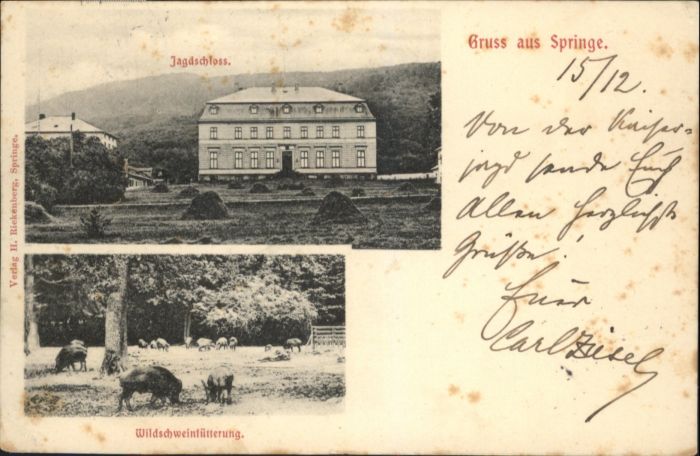 Jagdschloss.
Gruss aus Springe.
15/12.
Von der Kaiser-
jagd sende Euch
Allen herzlichste
Grüße!
Euer
Carl Ziesel
Verlag H. Riekenberg, Springe.
Wildschweinfütterung.